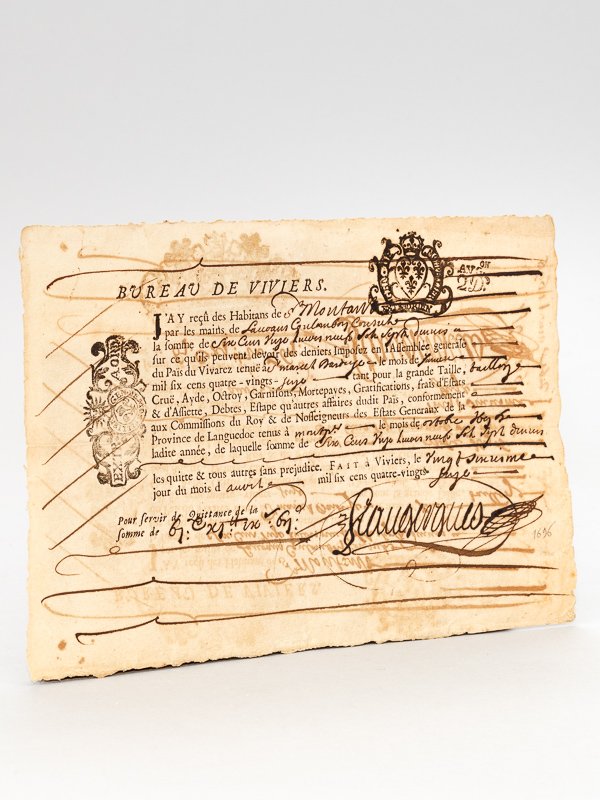 BUREAU DE VIVIERS.
AV ON
2 D
J'AY reçû des Habitans de St Montant
par les mains de Consul
la somme de Six Cens neuf sols sept deniers
sur ce qu'ils peuvent devoir des deniers Imposez en l'Assemblée generale
du Païs du Vivarez tenuë a St marcel le mois de
mil six cens quatre-vingts-seze tant pour la grande Taille, taillon,
Cruë, Ayde, Octroy, Garnisons, Mortepayes, Gratifications, frais d'Estats
& d'Assiette, Debtes, Estape qu'autres affaires dudit Païs, conformement
aux Commissions du Roy & de Nosseigneurs des Estats Generaux de la
Province de Languedoc tenus à le mois de octobre
ladite année, de laquelle somme de Six Cens neuf sols sept deniers
les quitte & tous autres sans prejudice. FAIT à Viviers, le Vingt sixiesme
jour du mois d'avril mil six cens quatre-vingts seze
Pour servir de Quittance de la
somme de
1696